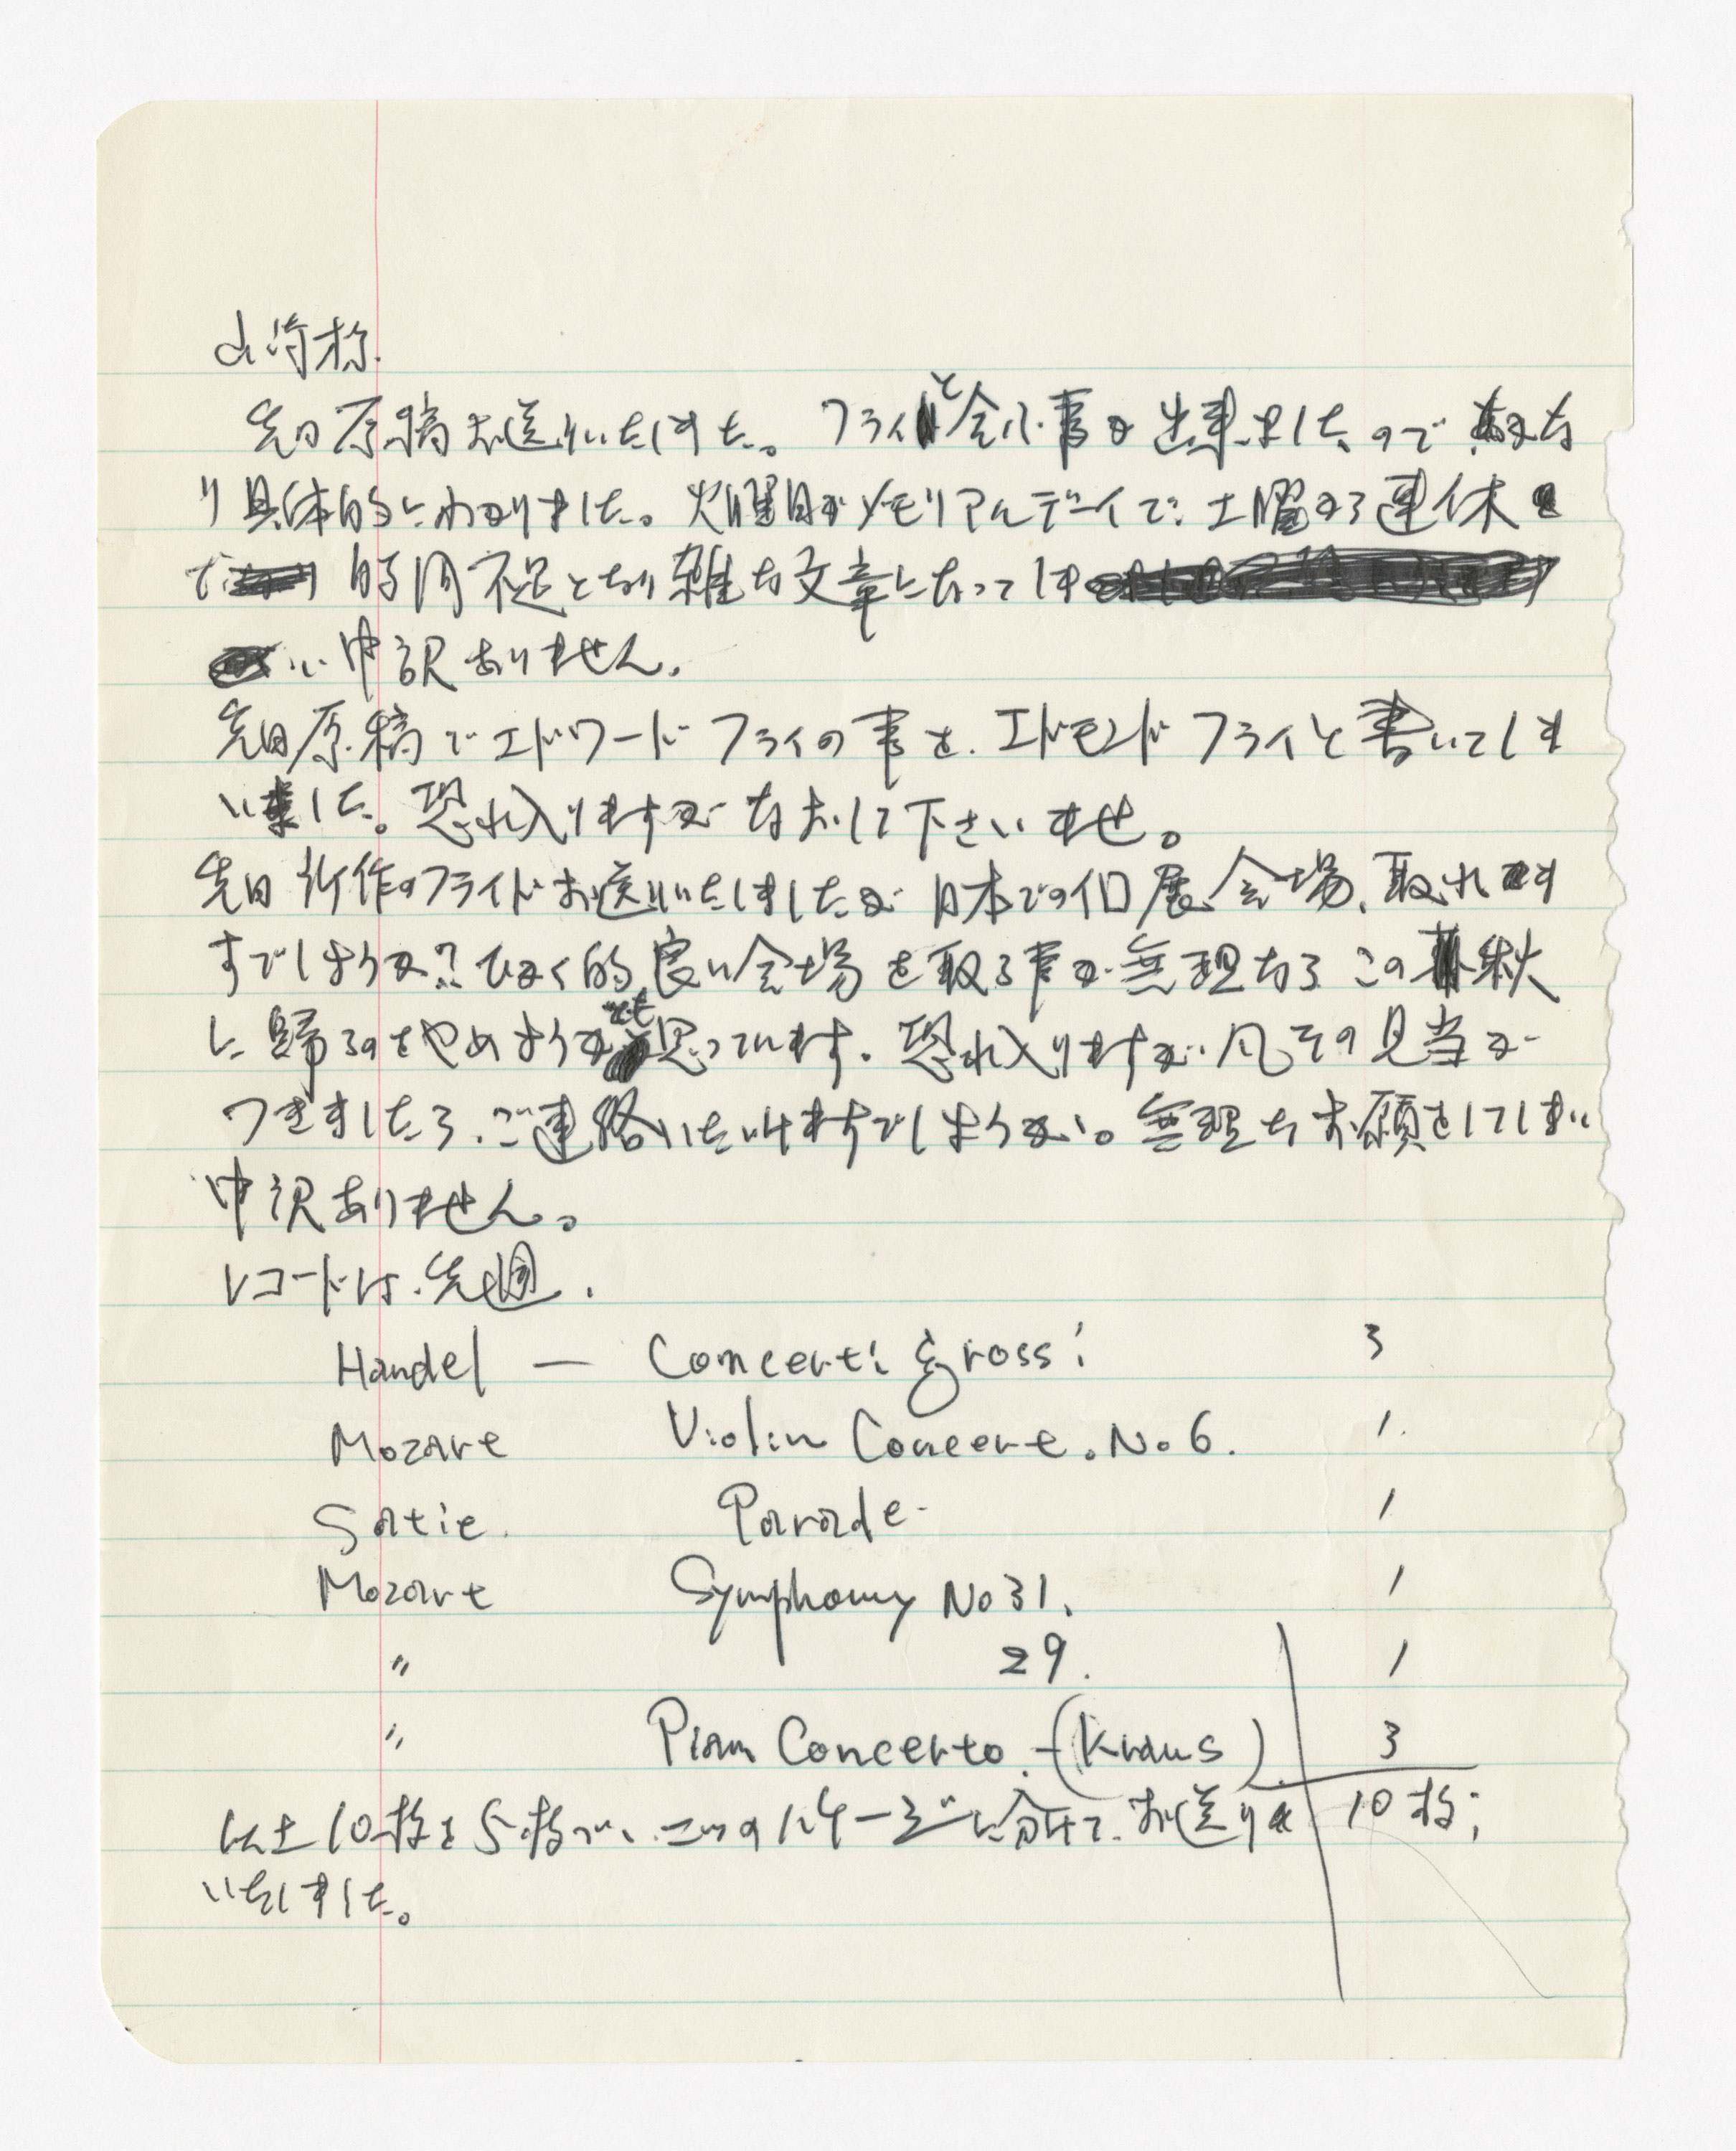 先日原稿お送りいたしました。フライと会ふ事が出来ましたので かな
り具体的にわかりました。火曜日がメモリアルデーイで、土曜から連休
で 時間不足となり雑な文章になってしま
い 申訳ありません。
先日原稿でエドワード フライの事を、エドモンド フライと書いてしま
いました。恐れ入りますが なおして下さいませ。
先日 新作のスライドお送りいたしましたが 日本での個展会場、取れま
すでしょうか? ひかく的良い会場を取る事が無理なら この秋
に帰るのをやめようかとも思っています。恐れ入りますが、凡その見当が
つきましたら、ご連絡いただけますでしょうか。無理なお願をしてしまい
申訳ありません。
レコードは、先週.
Handel — Concerti grossi 3
Mozart Violin Concert. No 6. 1.
Satie. Parade. 1
Mozart Symphony No 31. 1
〃 29. 1
〃 Piano Concerto. (Kraus) 3
以上10枚を5枚づゝ、二つのパケージに分けて、お送り 10枚;
いたしました。